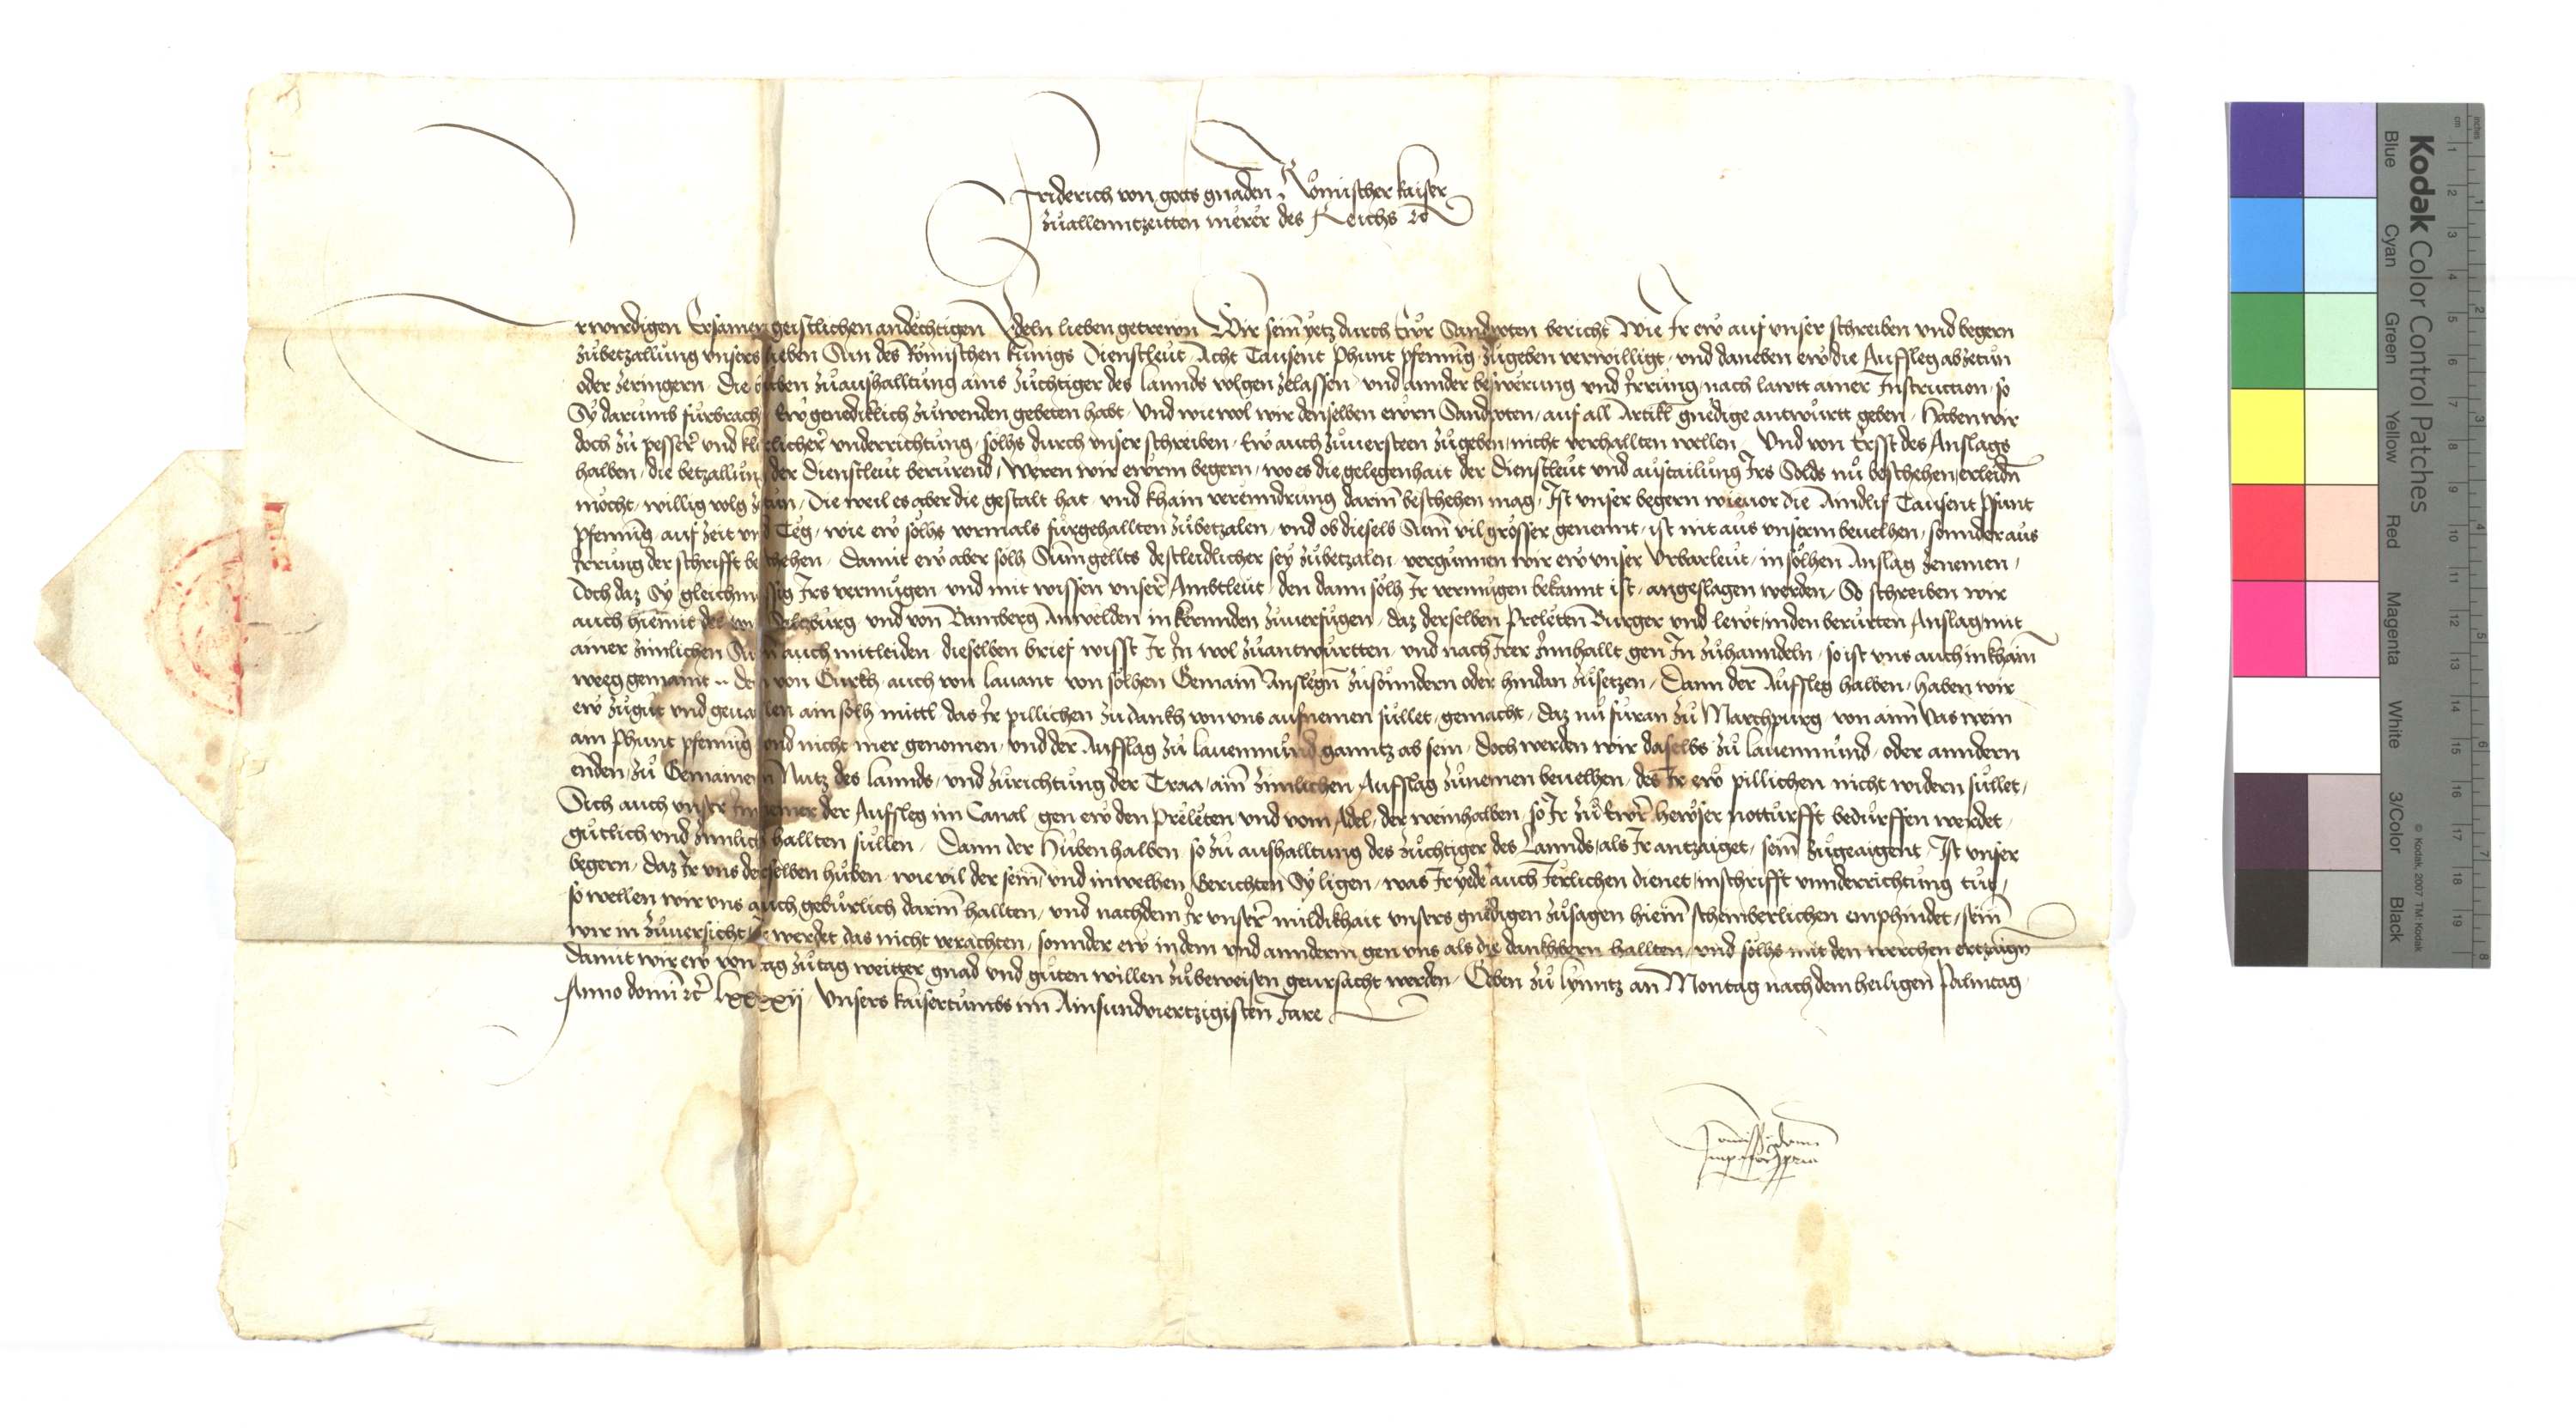 Friderich von gots gnaden Römischer kaiser
zuallenntzeitten merer des Reichs etc
Erwirdigen Ersamen geistlichen andechtigen Edeln lieben getrewn Wir sein yetz durch ewr Sandpoten bericht Wie Ir ew auf vnser schreiben vnd begern
zubetzallung vnsers lieben Sun des Römischen kunigs Dienstleut Acht Tausent Phunt pfenning zugeben verwilligt vnd daneben ew die Auffsleg abzetun
oder zeringern Die huben zuaushalltung ains zuchtiger des lannds volgen zelassen vnd annder beswerung vnd Irrung nach lawtt ainer Instruction so
Sy darumb furbracht Ew genediklich zuwenden gebeten habt Vnd wiewol wir denselben ewrn Sandpoten auf all Artikl gnedige antwurtt geben Haben wir
doch zu pesser vnd klerlicher vnderrichtung sölhs durch vnser schreiben Ew auch zuuersteen zugeben nicht verhallten wellen Vnd von Ersst des Anslags
halben die betzallung der Dienstleut berurend Weren wir ewrm begern wo es die gelegenhait der Dienstleut vnd austailung Irs Solds nu beschehen erleidn
möcht willig volg zetun Die weil es aber die gestalt hat vnd khain verenndrung darin beschehen mag Ist vnser begern wieuor die Aindlif Tausent Pfunt
Pfenning auf zeit vnd Teg wie ew sölhs vormals furgehallten zubetzalen vnd ob diesels Sum vil grösser genennt ist nit aus vnserm beuelhen sonnder aus
Irrung der schrifft beschehen Damit ew aber solh Sumgellts destleidlicher sey zubetzalen vergunnen wir ew vnser Vrbarleut in sölhen Anslag zenemen
Doch daz Sy gleichmessig Irs vermugen vnd mit wissen vnser Ambtleut den dann sölh Ir vermugen bekannt ist angeslagen werden So schreiben wir
auch hiemit den von Saltzburg vnd von Bamberg Anwelden in kernnden zuuerfugen daz derselben Preleten Burger vnd lewt in den berurten Anslag mit
ainer zimlichen Sum auch mitleiden dieselben brief wisst Ir In wol zuantwurtten vnd nach Irer Innhallt gen In zuhanndeln so ist vns auch in khain
weeg gemaint den von Gurkh auch von lauant von sölhen Gemain Anslegn zusönndern oder hindan zusetzen Dann der Auffsleg halben haben wir
ew zugut vnd geuallen ain sölh mittl das Ir pillichen zu dankh von vns aufnemen sullet gemacht daz nu furan zu Marchpurg von aim Vas wein
ain Phunt pfenning vnd nicht mer genomen vnd der Aufslag zu lauenmund ganntz ab sein Doch werden wir daselbs zu lauenmund oder anndern
enden zu Gemainem Nutz des lannds vnd zurichtung der Traa ain zimlichen Aufslag zunemen beuelhen des Ir ew pillichen nicht widern sullet
Sich auch vnser Innemer der Aufsleg im Canal gen ew den Preleten vnd vom Adel der wein halben so Ir zu ewr hewser notturfft bedurffen werdet
gutlich vnd zimlich hallten sullen Dann der Huben halben so zu aushalltung des zuchtiger des Lannds als Ir antzaiget sein zugeaigent Ist vnser
begern daz Ir vns derselben huben wie vil der sein vnd in welhen Gerichten Sy ligen was Ir yede auch Jerlichen dienet in schrifft vnnderrichtung tut
so wellen wir vns auch geburlich darin hallten vnd nachdem Ir vnser mildikhait vnsers gnedigen zusagen hierin scheinberlichen emphindet sein
wir in zuuersicht Ir werdet das nicht verachten sonnder ew in dem vnd annderm gen vns als die dankhbern hallten vnd sölhs mit den werchen ertzaign
Damit wir ew von tag zutag weitter gnad vnd guten willen zubeweisen geursacht werden Geben zu Lynntz an Montag nach dem heiligen Palmtag
Anno domini etc lxxxxij Vnsers kaisertumbs im Ainsundviertzigisten Jare
Kodak Color Control Patches
Blue Cyan Green Yellow Red Magenta White 3/Color Black
© Kodak, 2007 TM: Kodak
inches 1 2 3 4 5 6 7 8
cm 1 2 3 4 5 6 7 8 9 10 11 12 13 14 15 16 17 18 19